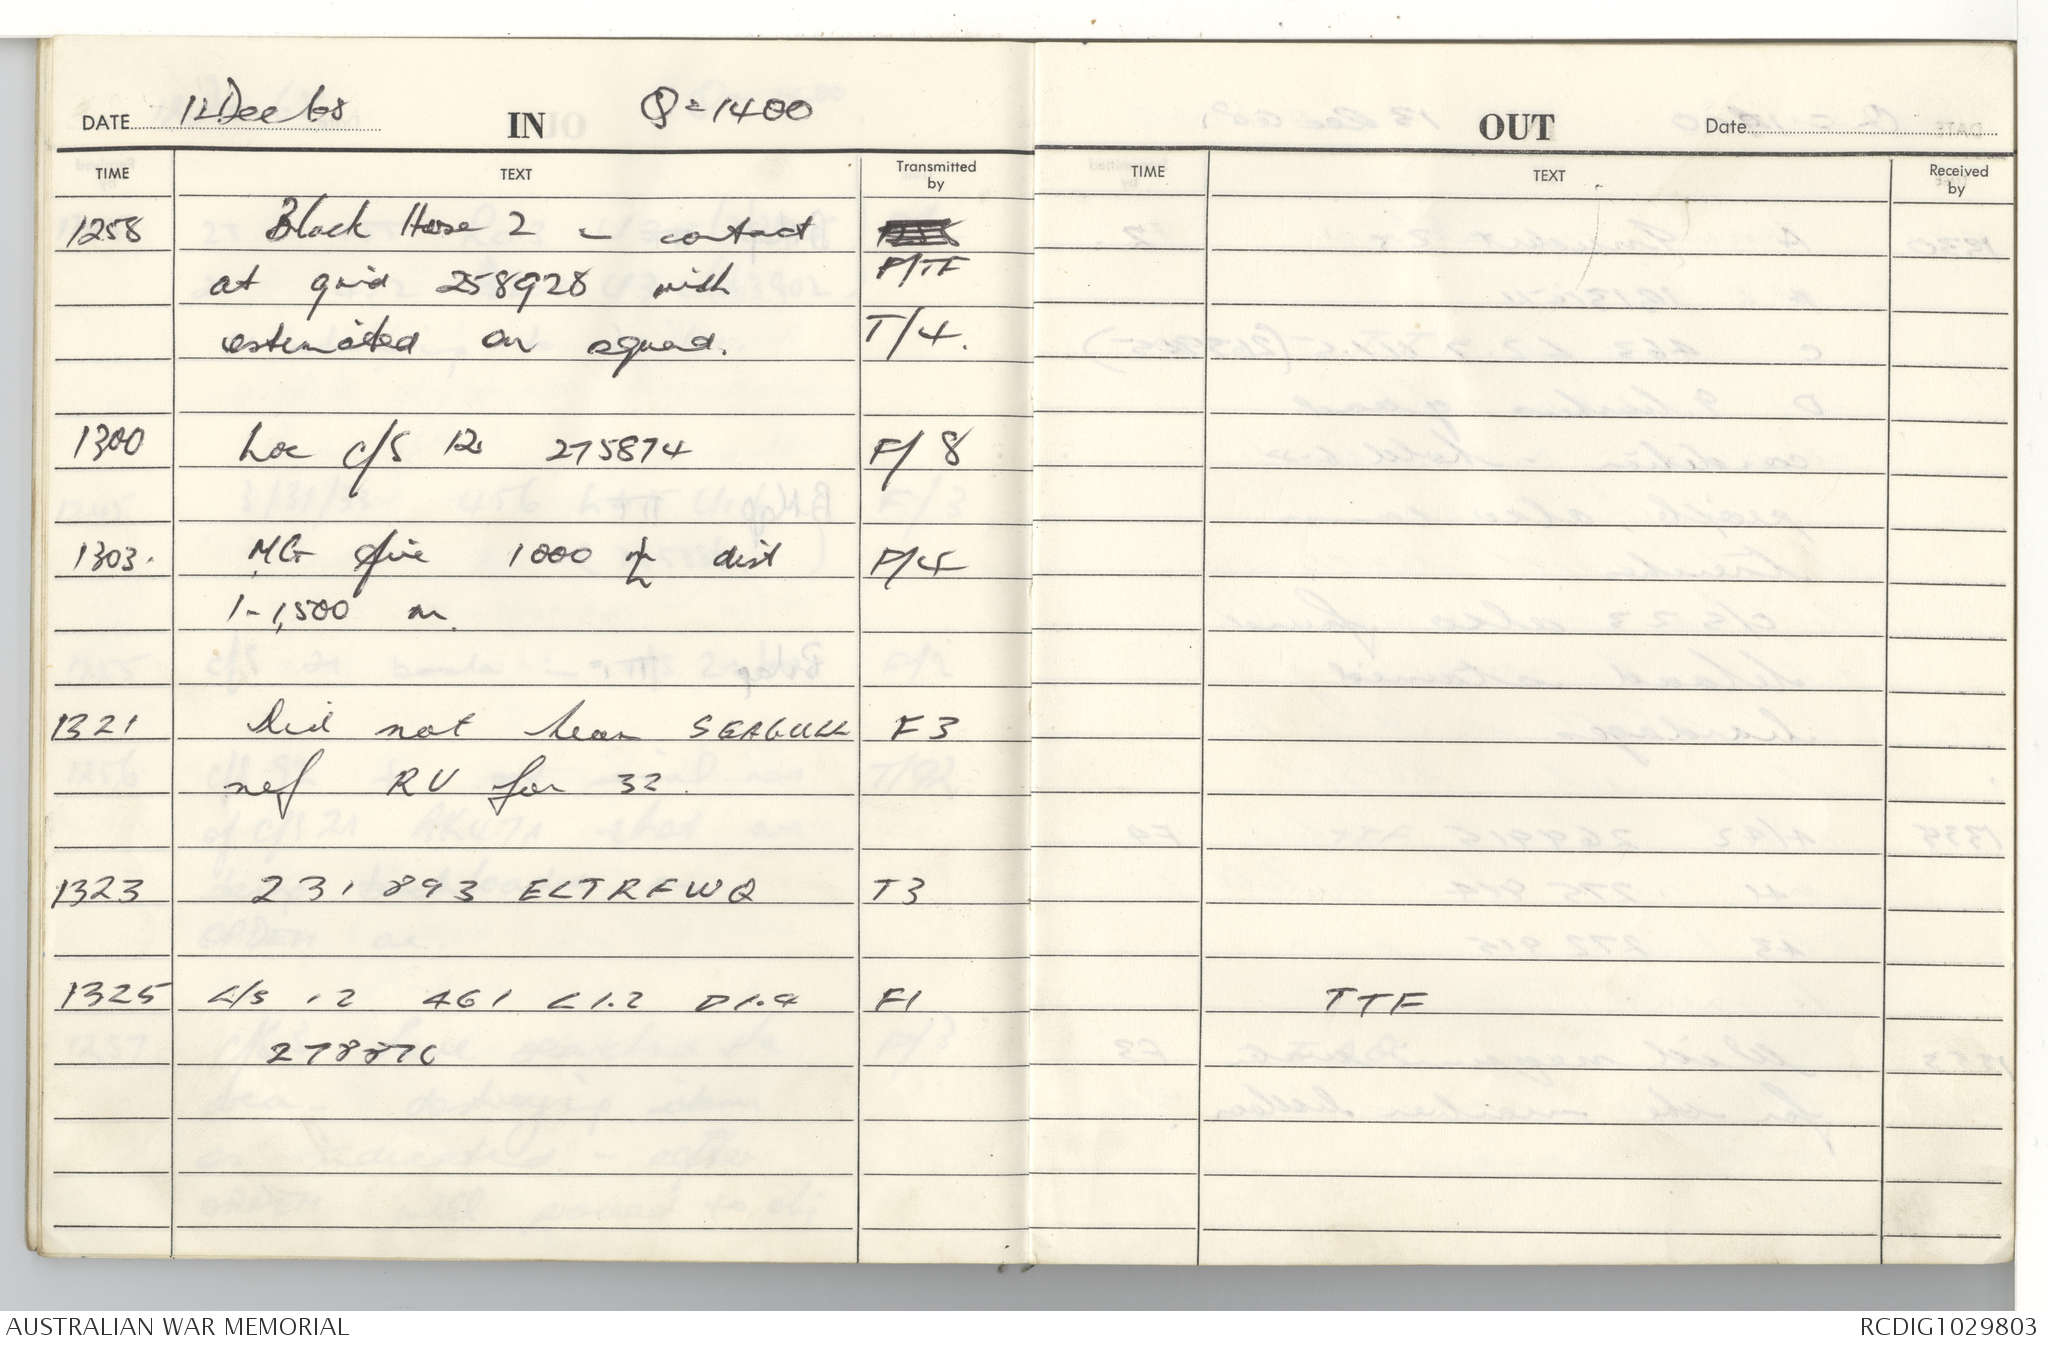 DATE 12 Dec 68 IN Q = 1400
TIME TEXT Transmitted by
1258 Black Horse 2 - contact
at grid 258928 with F/TF
estimated on squad. T/4.
1300 Loc C/S 12 275874 F/8
1303. MG fire 1000 dist F/4
1-1,500 m.
1321 Did not hear SEAGULL F3
ref RV for 32.
1323 231893 ELTRFWQ T3
1325 C/S 12 461 C1.2 D1.4 F1
278870
OUT Date
TIME TEXT Received by
TTF
AUSTRALIAN WAR MEMORIAL
RCDIG1029803